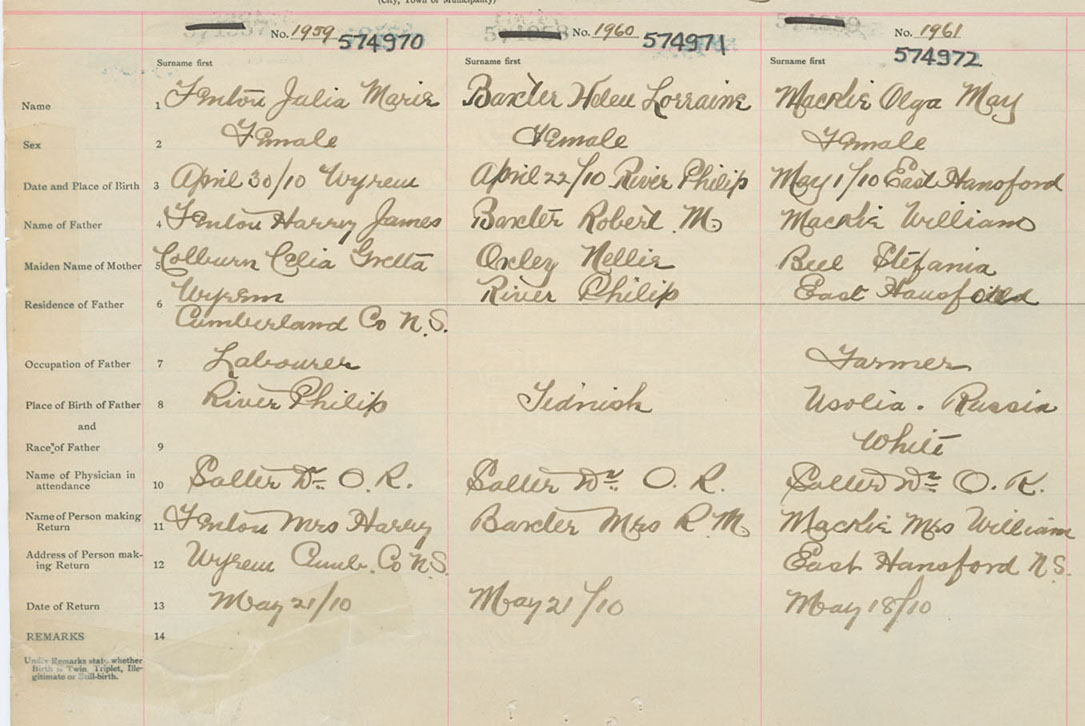 (City, Town or Municipality)
No. 1959 574970 No. 1960 574971 No. 1961 574972
Surname first Surname first Surname first
Name 1 Fenton Julia Marie Baxter Helen Lorraine Mackie Olga May
Sex 2 Female Female Female
Date and Place of Birth 3 April 30/10 Wyrem April 22/10 River Philip May 1/10 East Hansford
Name of Father 4 Fenton Harry James Baxter Robert M. Mackie William
Maiden Name of Mother 5 Colburn Celia Gretta Oxley Nellie Beel Stefania
Residence of Father 6 Wyrem River Philip East Hansford
Cumberland Co N.S.
Occupation of Father 7 Labourer Farmer
Place of Birth of Father 8 River Philip Tidnish Usolia. Russia
and
Race of Father 9 White
Name of Physician in attendance 10 Dr O. R. Dr. O. R. Dr O. R.
Name of Person making Return 11 Fenton Mrs Harry Baxter Mrs R. M. Mackie Mrs William
Address of Person making Return 12 Wyrem Cumb. Co N.S. East Hansford N.S.
Date of Return 13 May 21/10 May 21/10 May 18/10
REMARKS 14
Under Remarks state whether
Birth is Twin, Triplet, Ille-
gitimate or Still-birth.